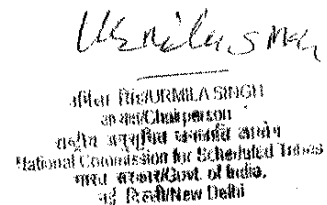 Urmila Singh
उर्मिला सिंह/URMILA SINGH
अध्यक्ष/Chairperson
राष्ट्रीय अनुसूचित जनजाति आयोग
National Commission for Scheduled Tribes
भारत सरकार/Govt. of India,
नई दिल्ली/New Delhi